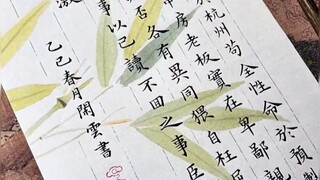 於杭州苟全性命於預制
房老板實在卑鄙親
否各有異同猥自枉屈
事以已讀不回之事臣
激
乙巳春月閑雲書